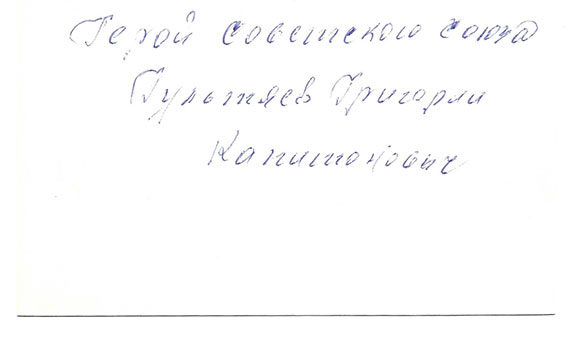 Герой Советского Союза
Гультяев Григорий
Капитонович